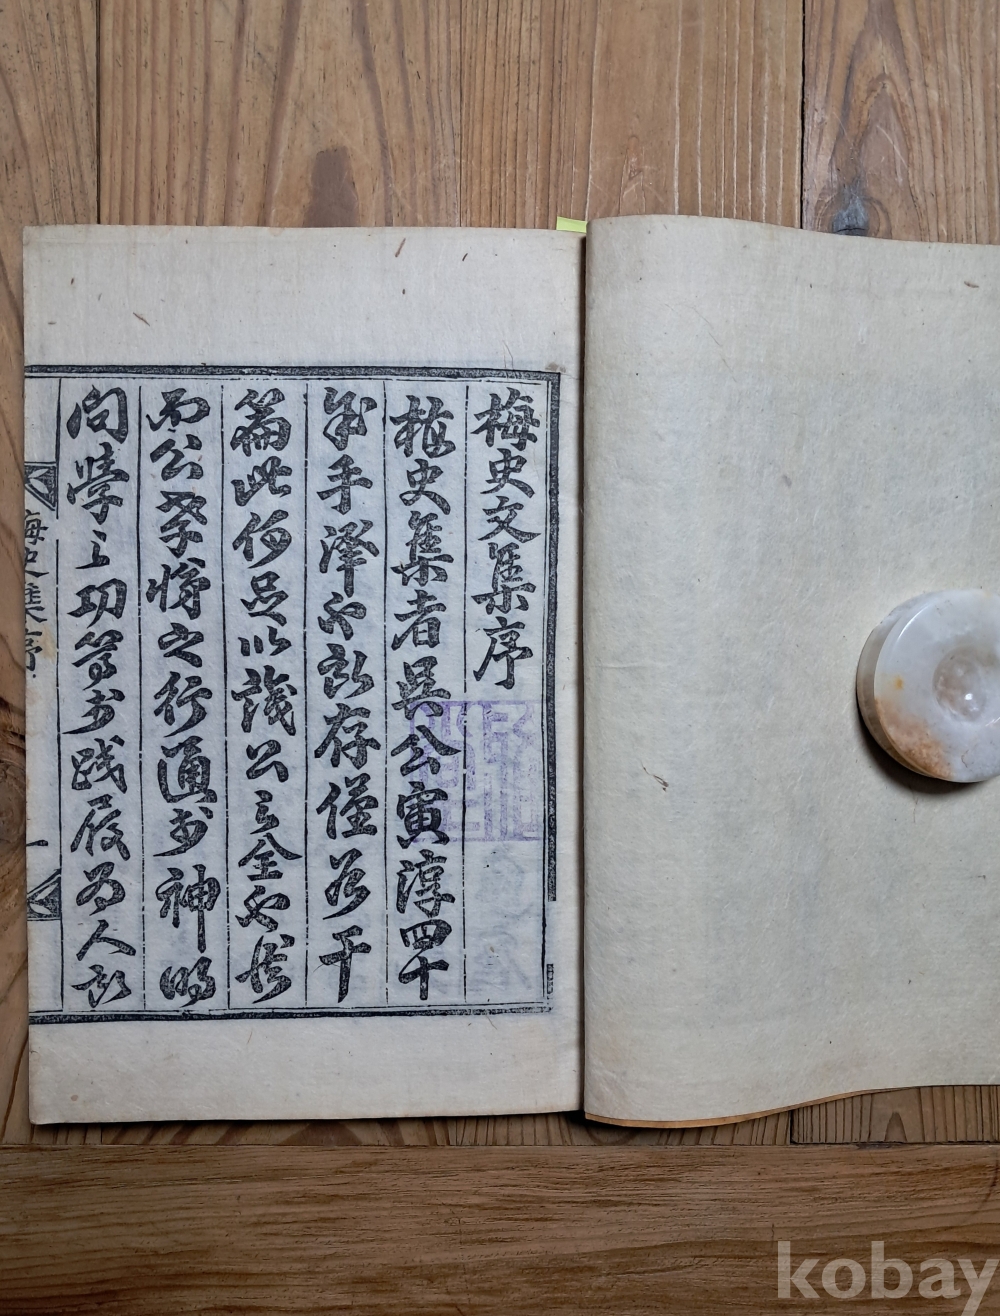 梅史文集序
梅史集者吳公寅淳四十
年手澤也所存僅若干
篇此何足以識公之全也哉
而公孝悌之行通於神明
問學之功篤於踐履爲人所
梅史集序
一
kobay